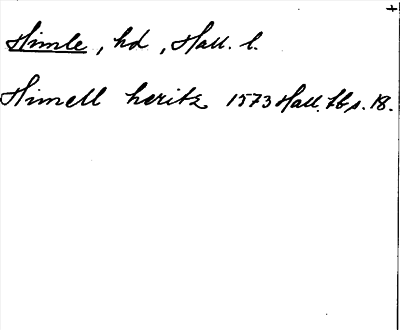 +
Himle, hd, Hall. l.
Himell heritz 1573 Hall. tb s. 18.